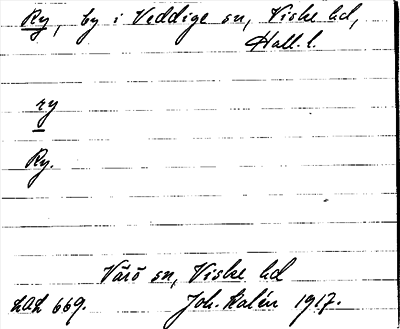 Ry, by i Veddige sn, Viske hd,
Hall. l.
ry
Ry.
Värö sn, Viske hd
LAL 669. Joh. Kalén 1917.